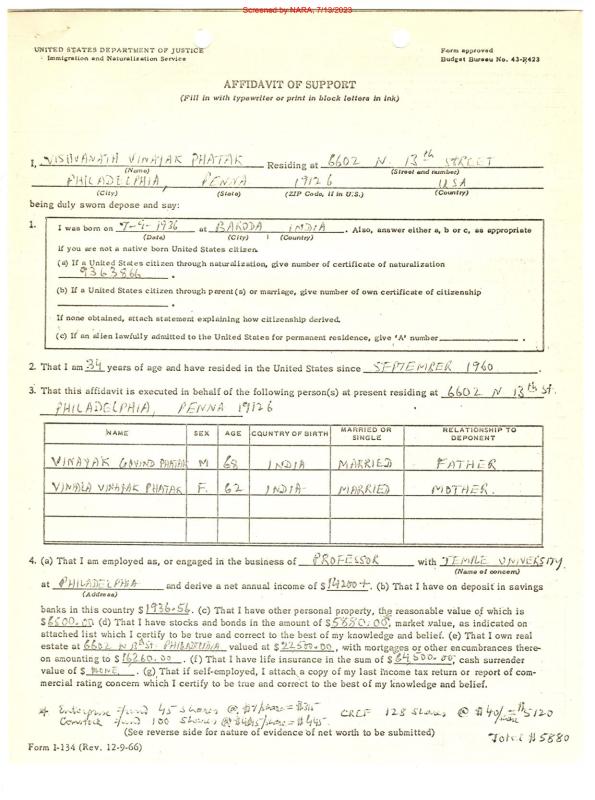 Screened by NARA, 7/13/2023
UNITED STATES DEPARTMENT OF JUSTICE
Immigration and Naturalization Service
Form approved
Budget Bureau No. 43-R423
AFFIDAVIT OF SUPPORT
(Fill in with typewriter or print in block letters in ink)
I, VISHVANATH VINAYAK PHATAK Residing at 6602 N. 13th STREET
(Name) (Street and number)
PHILADELPHIA, PENNA 19126 USA
(City) (State) (ZIP Code, if in U.S.) (Country)
being duly sworn depose and say:
1. I was born on 7-9-1936 at BARODA INDIA. Also, answer either a, b or c, as appropriate
(Date) (City) (Country)
if you are not a native born United States citizen.
(a) If a United States citizen through naturalization, give number of certificate of naturalization
9363866.
(b) If a United States citizen through parent(s) or marriage, give number of own certificate of citizenship
If none obtained, attach statement explaining how citizenship derived.
(c) If an alien lawfully admitted to the United States for permanent residence, give 'A' number
2. That I am 34 years of age and have resided in the United States since SEPTEMBER 1960.
3. That this affidavit is executed in behalf of the following person(s) at present residing at 6602 N 13th St.
PHILADELPHIA, PENNA 19126
NAME SEX AGE COUNTRY OF BIRTH MARRIED OR SINGLE RELATIONSHIP TO DEPONENT
VINAYAK GOVIND PHATAK M 68 INDIA MARRIED FATHER
VIMALA VINAYAK PHATAK F. 62 INDIA MARRIED MOTHER.
4. (a) That I am employed as, or engaged in the business of PROFESSOR with TEMPLE UNIVERSITY
(Name of concern)
at PHILADELPHIA and derive a net annual income of $14200+. (b) That I have on deposit in savings
(Address)
banks in this country $1936.56. (c) That I have other personal property, the reasonable value of which is
$6500.00 (d) That I have stocks and bonds in the amount of $5880.00, market value, as indicated on
attached list which I certify to be true and correct to the best of my knowledge and belief. (e) That I own real
estate at 6602 N 13th St. PHILADELPHIA valued at $22500.00, with mortgages or other encumbrances there-
on amounting to $16260.00. (f) That I have life insurance in the sum of $64,500.00; cash surrender
value of $ NONE. (g) That if self-employed, I attach a copy of my last income tax return or report of com-
mercial rating concern which I certify to be true and correct to the best of my knowledge and belief.
* Enterprise Fund 45 shares @ $7/share = $315 CREF 128 shares @ $40/share = $5120
Fund 100 shares = $445
(See reverse side for nature of evidence of net worth to be submitted) Total $5880
Form I-134 (Rev. 12-9-66)